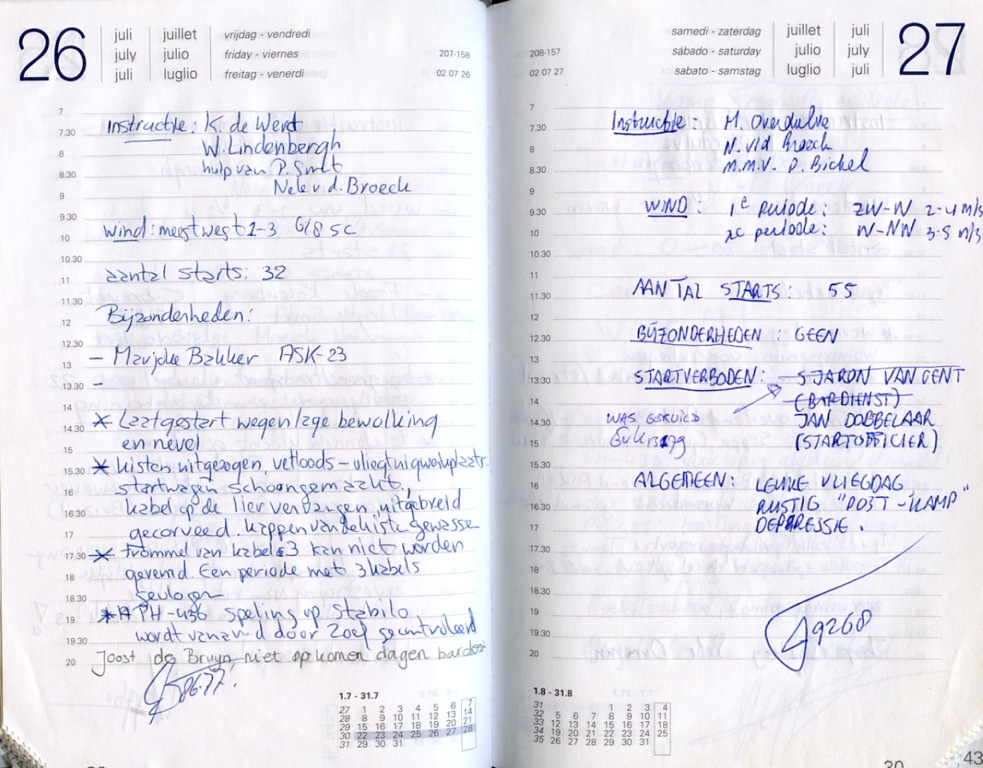 26
juli juillet vrijdag - vendredi
july julio friday - viernes 207-158
juli luglio freitag - venerdì 02 07 26
7
7.30 Instructie: K. de Werd
8 W. Lindenbergh
8.30 hulp van P. Smit
9 Nele v.d. Broeck
9.30
10 wind: meest west 1-3 6/8 SC
10.30
11 aantal starts: 32
11.30
12 Bijzonderheden:
12.30
13 - Marjoke Bakker ASK-23
13.30 -
14
14.30 * Laat gestart wegen lage bewolking
15 en nevel
15.30 * kisten uitgezogen, vetloods - vliegtuigwerkplaats
16 startwagen schoongemaakt,
16.30 kabel op de lier vervangen, uitgebreid
17 gecorveed. kappen van de kiste gewasse
17.30 * trommel van kabel 3 kan niet worden
18 geremd. Een periode met 3 kabels
18.30 gevlogen
19 * PH-436 speling op stabilo
19.30 wordt vanavond door Zoef gecontroleerd
20 Joost de Bruyn, niet op komen dagen bardienst
1.7 - 31.7
27 1 2 3 4 5 6 7
28 8 9 10 11 12 13 14
29 15 16 17 18 19 20 21
30 22 23 24 25 26 27 28
31 29 30 31
samedi - zaterdag juillet juli 27
sábado - saturday julio july
208-157
sabato - samstag luglio juli
02 07 27
7
7.30 Instructie: M. Overdulve
8 N. v/d Broeck
8.30 M.M.V. P. Bickel
9
9.30 WIND: 1e periode: ZW-W 2-4 m/s
10 2e periode: W-NW 3-5 m/s
10.30
11
11.30 AANTAL STARTS: 55
12
12.30 BIJZONDERHEDEN: GEEN
13
13.30 STARTVERBODEN: - SJARON VAN GENT
14 (BARDIENST)
14.30 WAS GERUILD JAN DOBBELAAR
15 (STARTOFFICIER)
15.30
16 ALGEMEEN: LEUKE VLIEGDAG
16.30 RUSTIG "POST-KAMP"
17 DEPRESSIE.
17.30
18
18.30
19
19.30 9268
20
1.8 - 31.8
31 1 2 3 4
32 5 6 7 8 9 10 11
33 12 13 14 15 16 17 18
34 19 20 21 22 23 24 25
35 26 27 28 29 30 31
30 43